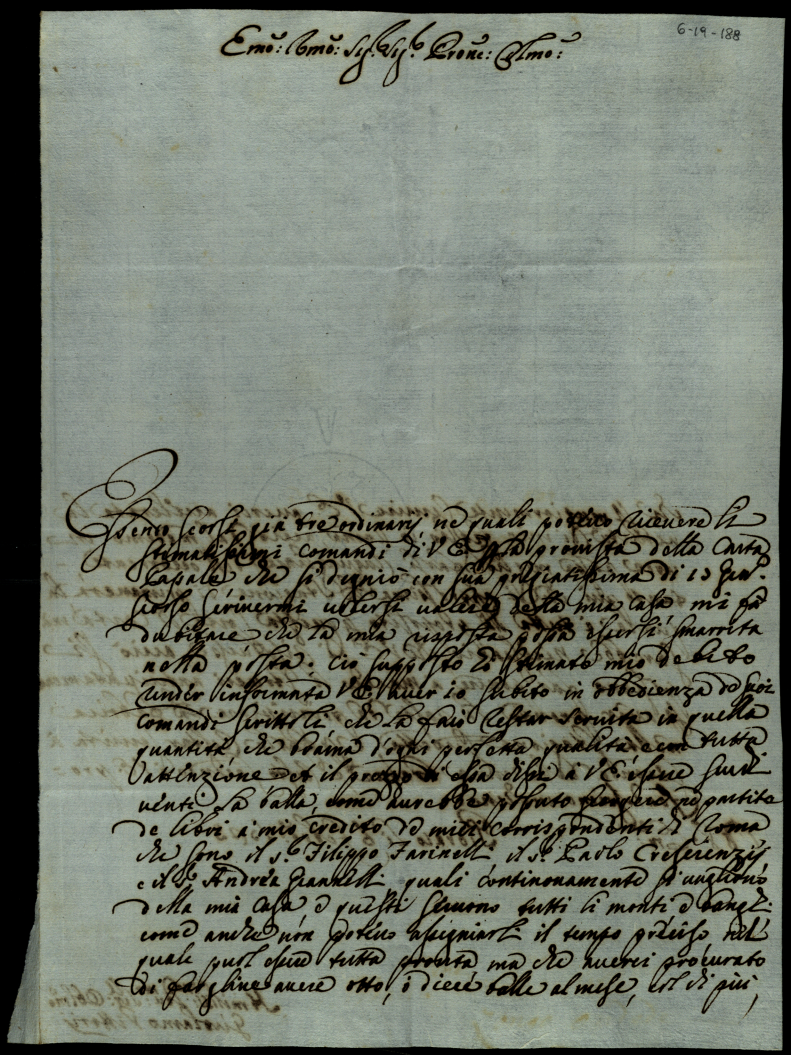 6-19-188
Emo: Rmo: Sig.r Sig.r Prone: Colmo:
Essendo scorsi già tre ordinarij ne quali potevo ricevere li
stimatissimi comandi di V E la provista della Carta
Papale che si degniò con sua pregiatissima di 13
scorso scrivermi volersi valere della mia casa mi fà
dubitare che la mia risposta possa essersi smarrita
nella posta. Ciò supposto hò stimato mio debito
render informata V E aver io subito in obbedienza de suoi
comandi scrittoli che la farò restar servita in quella
quantità che brama d'ogni perfetta qualità e con tutta
attenzione et il prezzo di essa dissi à V E essere scudi
venti la balla, come avrebbe possuto scorgere ne partite
de libri à mio credito de miei corrispondenti di Roma
che sono il s.r Filippo Farinelli il s.r Paolo Crescenzij
e il s.r Andrea Giannelli, quali continouamente si vagliono
della mia casa e questi servono tutti li monti e
come anche non potevo assigniarli il tempo preciso nel
quale puol essere tutta pronta ma che averei procurato
di fargline avere otto, ò diece balle al mese, e di più,